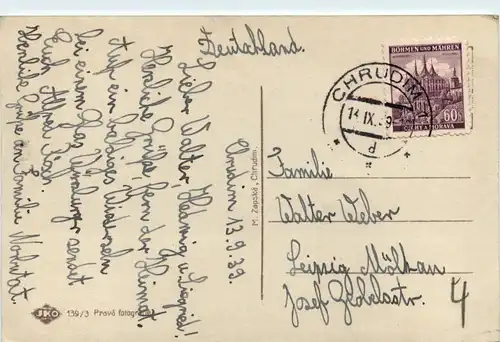 Deutschland.
BÖHMEN UND MÄHREN
60
ČECHY A MORAVA
CHRUDIM
14.IX.39
d
Chrudim 13.9.39.
Lieber Walter, Hedwig u. Siegfried!
Herzliche Grüße, fern der Heimat.
Auf ein baldiges Wiedersehn
bei einem Glas Würzburger sendet
Euch Alfred
Herzliche Grüße an Familie
M. Zapská, Chrudim.
Familie
Walter Weber
Leipzig Mölkau
Josef
4
JKO
139/3 Pravá fotografie